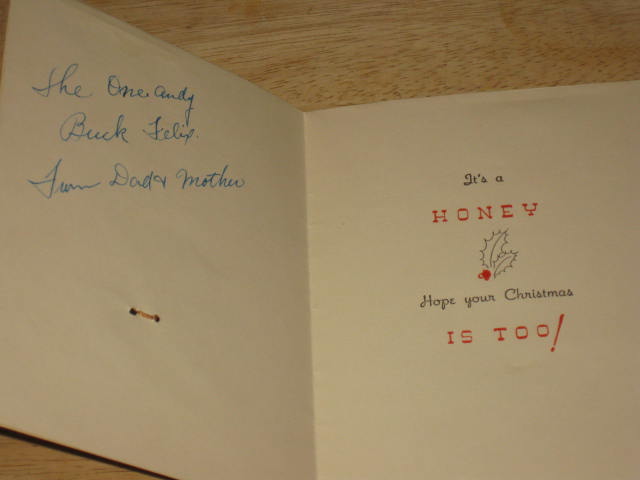 The One andy
Buck Felix.
From Dad & Mother
It's a
HONEY
Hope your Christmas
IS TOO!